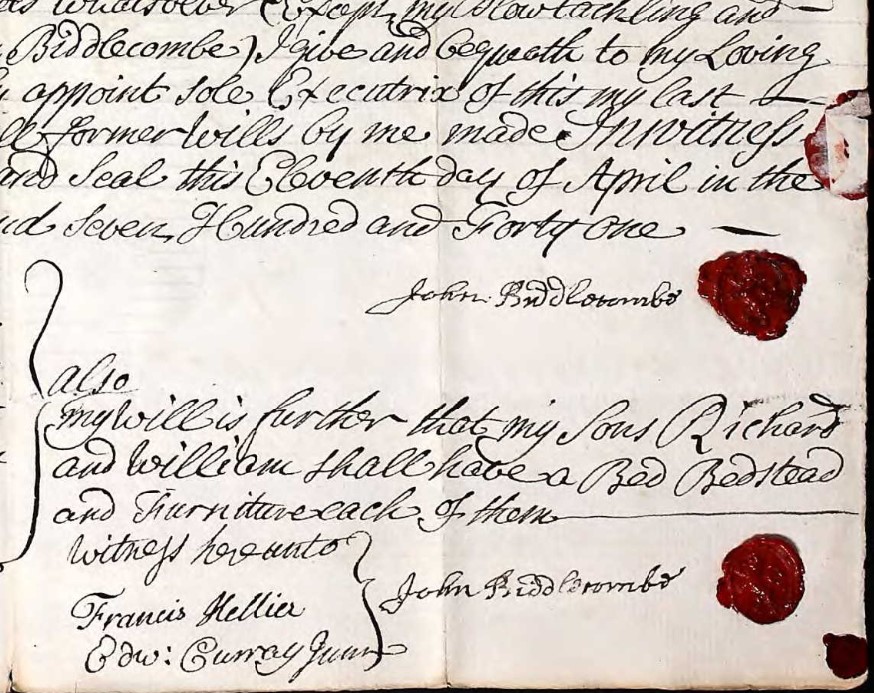 whatsoever (Except my Plow tackling and
Biddlecombe) I give and bequeath to my Loving
appoint sole Executrix of this my last
former Wills by me made In witness
and Seal this Eleventh day of April in the
Seven Hundred and Forty one
John Biddlecombe
also
my will is further that my Sons Richard
and William shall have a Bed Bedstead
and Furniture each of them
Witness hereunto
John Biddlecombe
Francis Hellier
Edw: Curray Junr